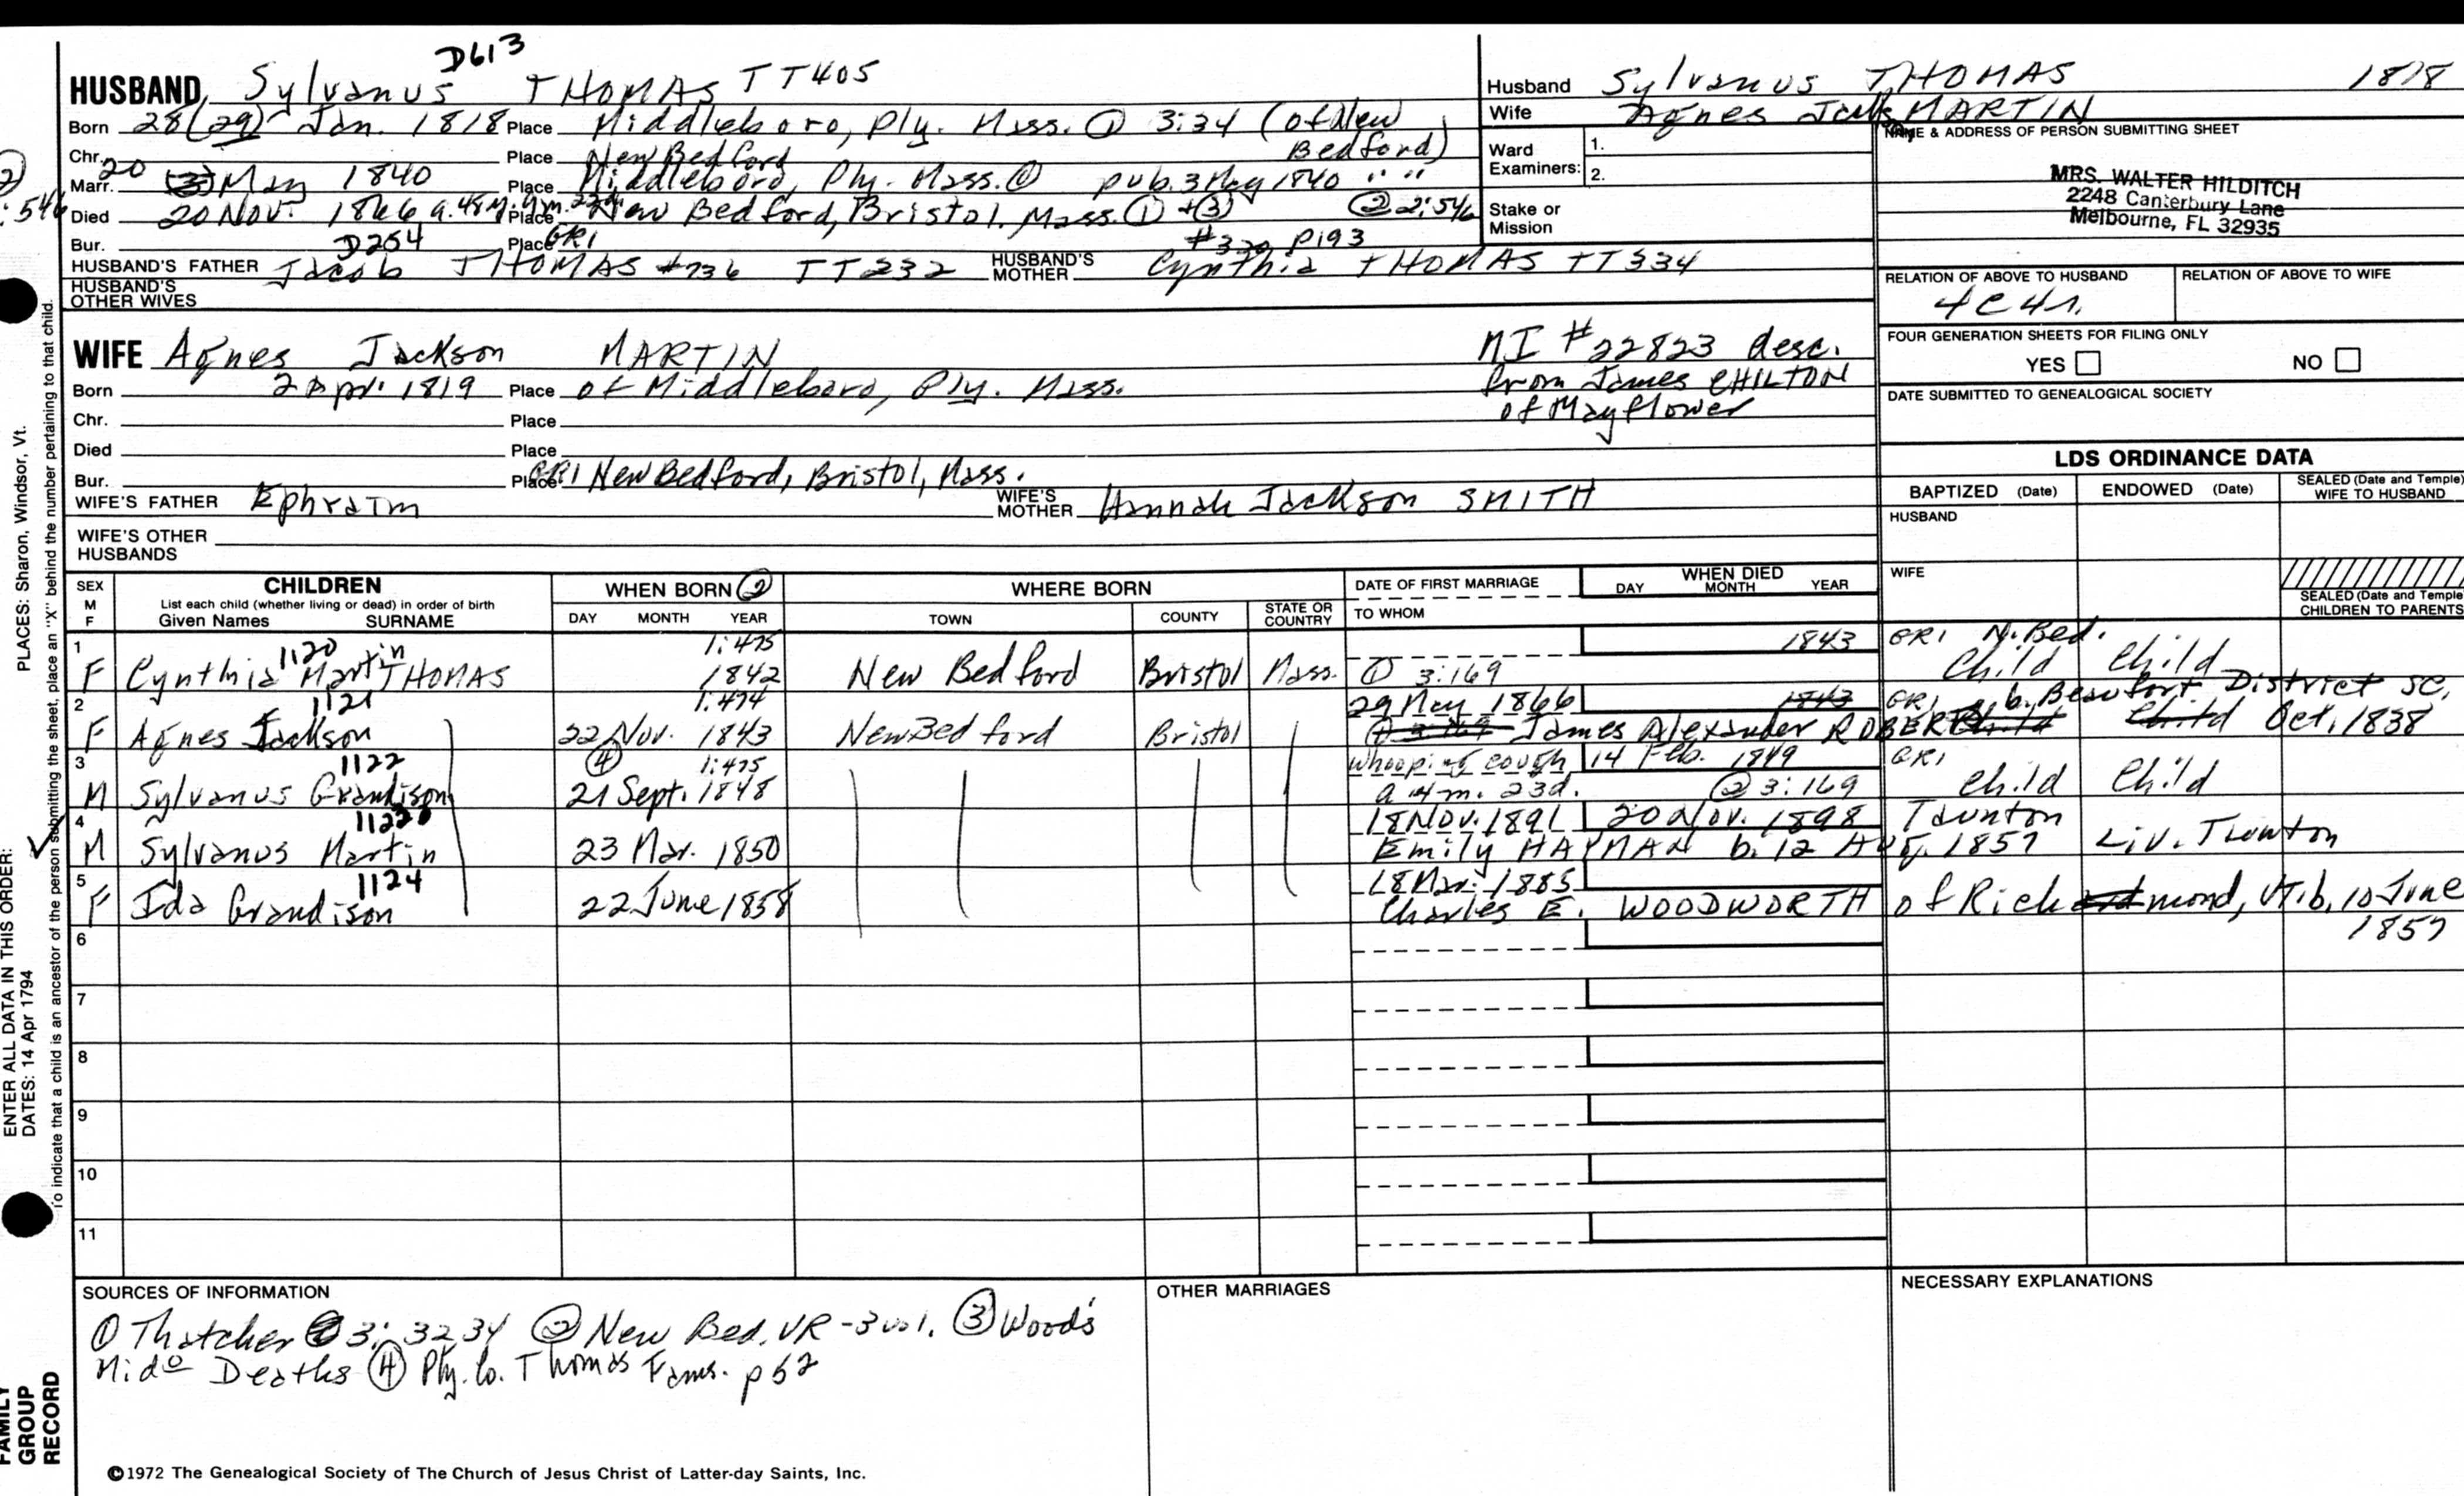 D613
HUSBAND Sylvanus THOMAS TT405
Born 28(29) Jan. 1818 Place Middleboro, Ply. Mass. ① 3:34 (of New Bedford)
Chr. Place New Bedford
Marr. 20 (3) May 1840 Place Middleboro, Ply. Mass. ① pub. 3 May 1840 " "
Died 20 Nov. 1866 a. 48 Place New Bedford, Bristol, Mass. ① + ③ ② 2:546
Bur. Place GR1
D254 #320 p193
HUSBAND'S FATHER Jacob THOMAS #736 TT232 HUSBAND'S MOTHER Cynthia THOMAS TT334
HUSBAND'S OTHER WIVES
WIFE Agnes Jackson MARTIN
Born 2 Apr. 1819 Place of Middleboro, Ply. Mass.
MI #22823 desc.
from James CHILTON
of Mayflower
Chr. Place
Died Place
Bur. Place GR1 New Bedford, Bristol, Mass.
WIFE'S FATHER Ephraim WIFE'S MOTHER Hannah Jackson SMITH
WIFE'S OTHER HUSBANDS
Husband Sylvanus THOMAS 1818
Wife Agnes Jackson MARTIN
Ward Examiners: 1.
2.
Stake or Mission
NAME & ADDRESS OF PERSON SUBMITTING SHEET
MRS. WALTER HILDITCH
2248 Canterbury Lane
Melbourne, FL 32935
RELATION OF ABOVE TO HUSBAND RELATION OF ABOVE TO WIFE
4C4r.
FOUR GENERATION SHEETS FOR FILING ONLY
YES NO
DATE SUBMITTED TO GENEALOGICAL SOCIETY
LDS ORDINANCE DATA
BAPTIZED (Date) ENDOWED (Date) SEALED (Date and Temple) WIFE TO HUSBAND
HUSBAND
WIFE
SEALED (Date and Temple) CHILDREN TO PARENTS
SEX M F CHILDREN WHEN BORN ② WHERE BORN DATE OF FIRST MARRIAGE WHEN DIED
List each child (whether living or dead) in order of birth
Given Names SURNAME DAY MONTH YEAR TOWN COUNTY STATE OR COUNTRY TO WHOM DAY MONTH YEAR
1 1120 1:475 1843 GR1 N. Bed.
F Cynthia Martin THOMAS 1842 New Bedford Bristol Mass. ① 3:169 Child Child
2 1121 1:474 29 May 1866 1843 GR1 b. Beaufort District SC,
F Agnes Jackson 22 Nov. 1843 New Bedford Bristol James Alexander ROBERTS Child Oct. 1838
3 1122 ④ 1:475 Whooping cough 14 Feb. 1849 GR1
M Sylvanus Grandison 21 Sept. 1848 a 4m. 23d. ② 3:169 Child Child
4 1123 18 Nov. 1891 20 Nov. 1898 Taunton
M Sylvanus Martin 23 Mar. 1850 Emily HAYMAN b. 12 Aug. 1857 Liv. Taunton
5 1124 18 Mar. 1885
F Ida Grandison 22 June 1858 Charles E. WOODWORTH of Richmond, Vt. b. 10 June 1857
6
7
8
9
10
11
SOURCES OF INFORMATION
① Thatcher 3: 32 34 ② New Bed. VR - 3 vol. ③ Wood's
Mido Deaths ④ Ply. Co. Thomas Fams. p 52
OTHER MARRIAGES
NECESSARY EXPLANATIONS
©1972 The Genealogical Society of The Church of Jesus Christ of Latter-day Saints, Inc.
PLACES: Sharon, Windsor, Vt.
ENTER ALL DATA IN THIS ORDER:
DATES: 14 Apr 1794
To indicate that a child is an ancestor of the person submitting the sheet, place an "X" behind the number pertaining to that child.
FAMILY GROUP RECORD